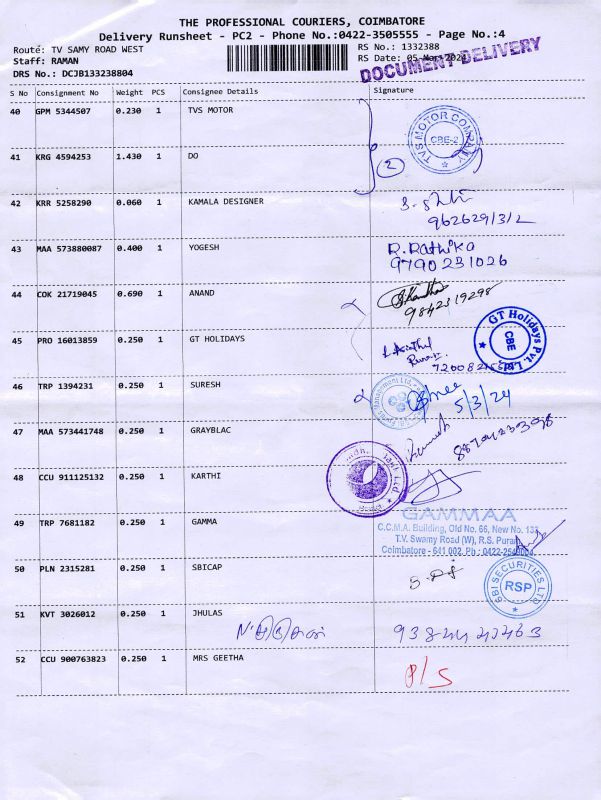 THE PROFESSIONAL COURIERS, COIMBATORE
Delivery Runsheet - PC2 - Phone No.:0422-3505555 - Page No.:4
Route: TV SAMY ROAD WEST
RS No.: 1332388
Staff: RAMAN
RS Date: 05-Mar-2024
DOCUMENT DELIVERY
DRS No.: DCJB133238804
S No Consignment No Weight PCS Consignee Details Signature
40 GPM 5344507 0.230 1 TVS MOTOR
TVS MOTOR COMPANY
CBE-2
2
41 KRG 4594253 1.430 1 DO
42 KRR 5258290 0.060 1 KAMALA DESIGNER
43 MAA 573880087 0.400 1 YOGESH R.Rathika
9790231026
44 COK 21719045 0.690 1 ANAND
9842319298
45 PRO 16013859 0.250 1 GT HOLIDAYS
GT Holidays Pvt. Ltd.
CBE
46 TRP 1394231 0.250 1 SURESH
5/3/24
47 MAA 573441748 0.250 1 GRAYBLAC
48 CCU 911125132 0.250 1 KARTHI
49 TRP 7681182 0.250 1 GAMMA
GAMMAA
C.C.M.A. Building, Old No. 66, New No. 137
T.V. Swamy Road (W), R.S. Puram
Coimbatore - 641 002. Ph : 0422-
50 PLN 2315281 0.250 1 SBICAP
SBI SECURITIES LTD
RSP
51 KVT 3026012 0.250 1 JHULAS
52 CCU 900763823 0.250 1 MRS GEETHA P/S